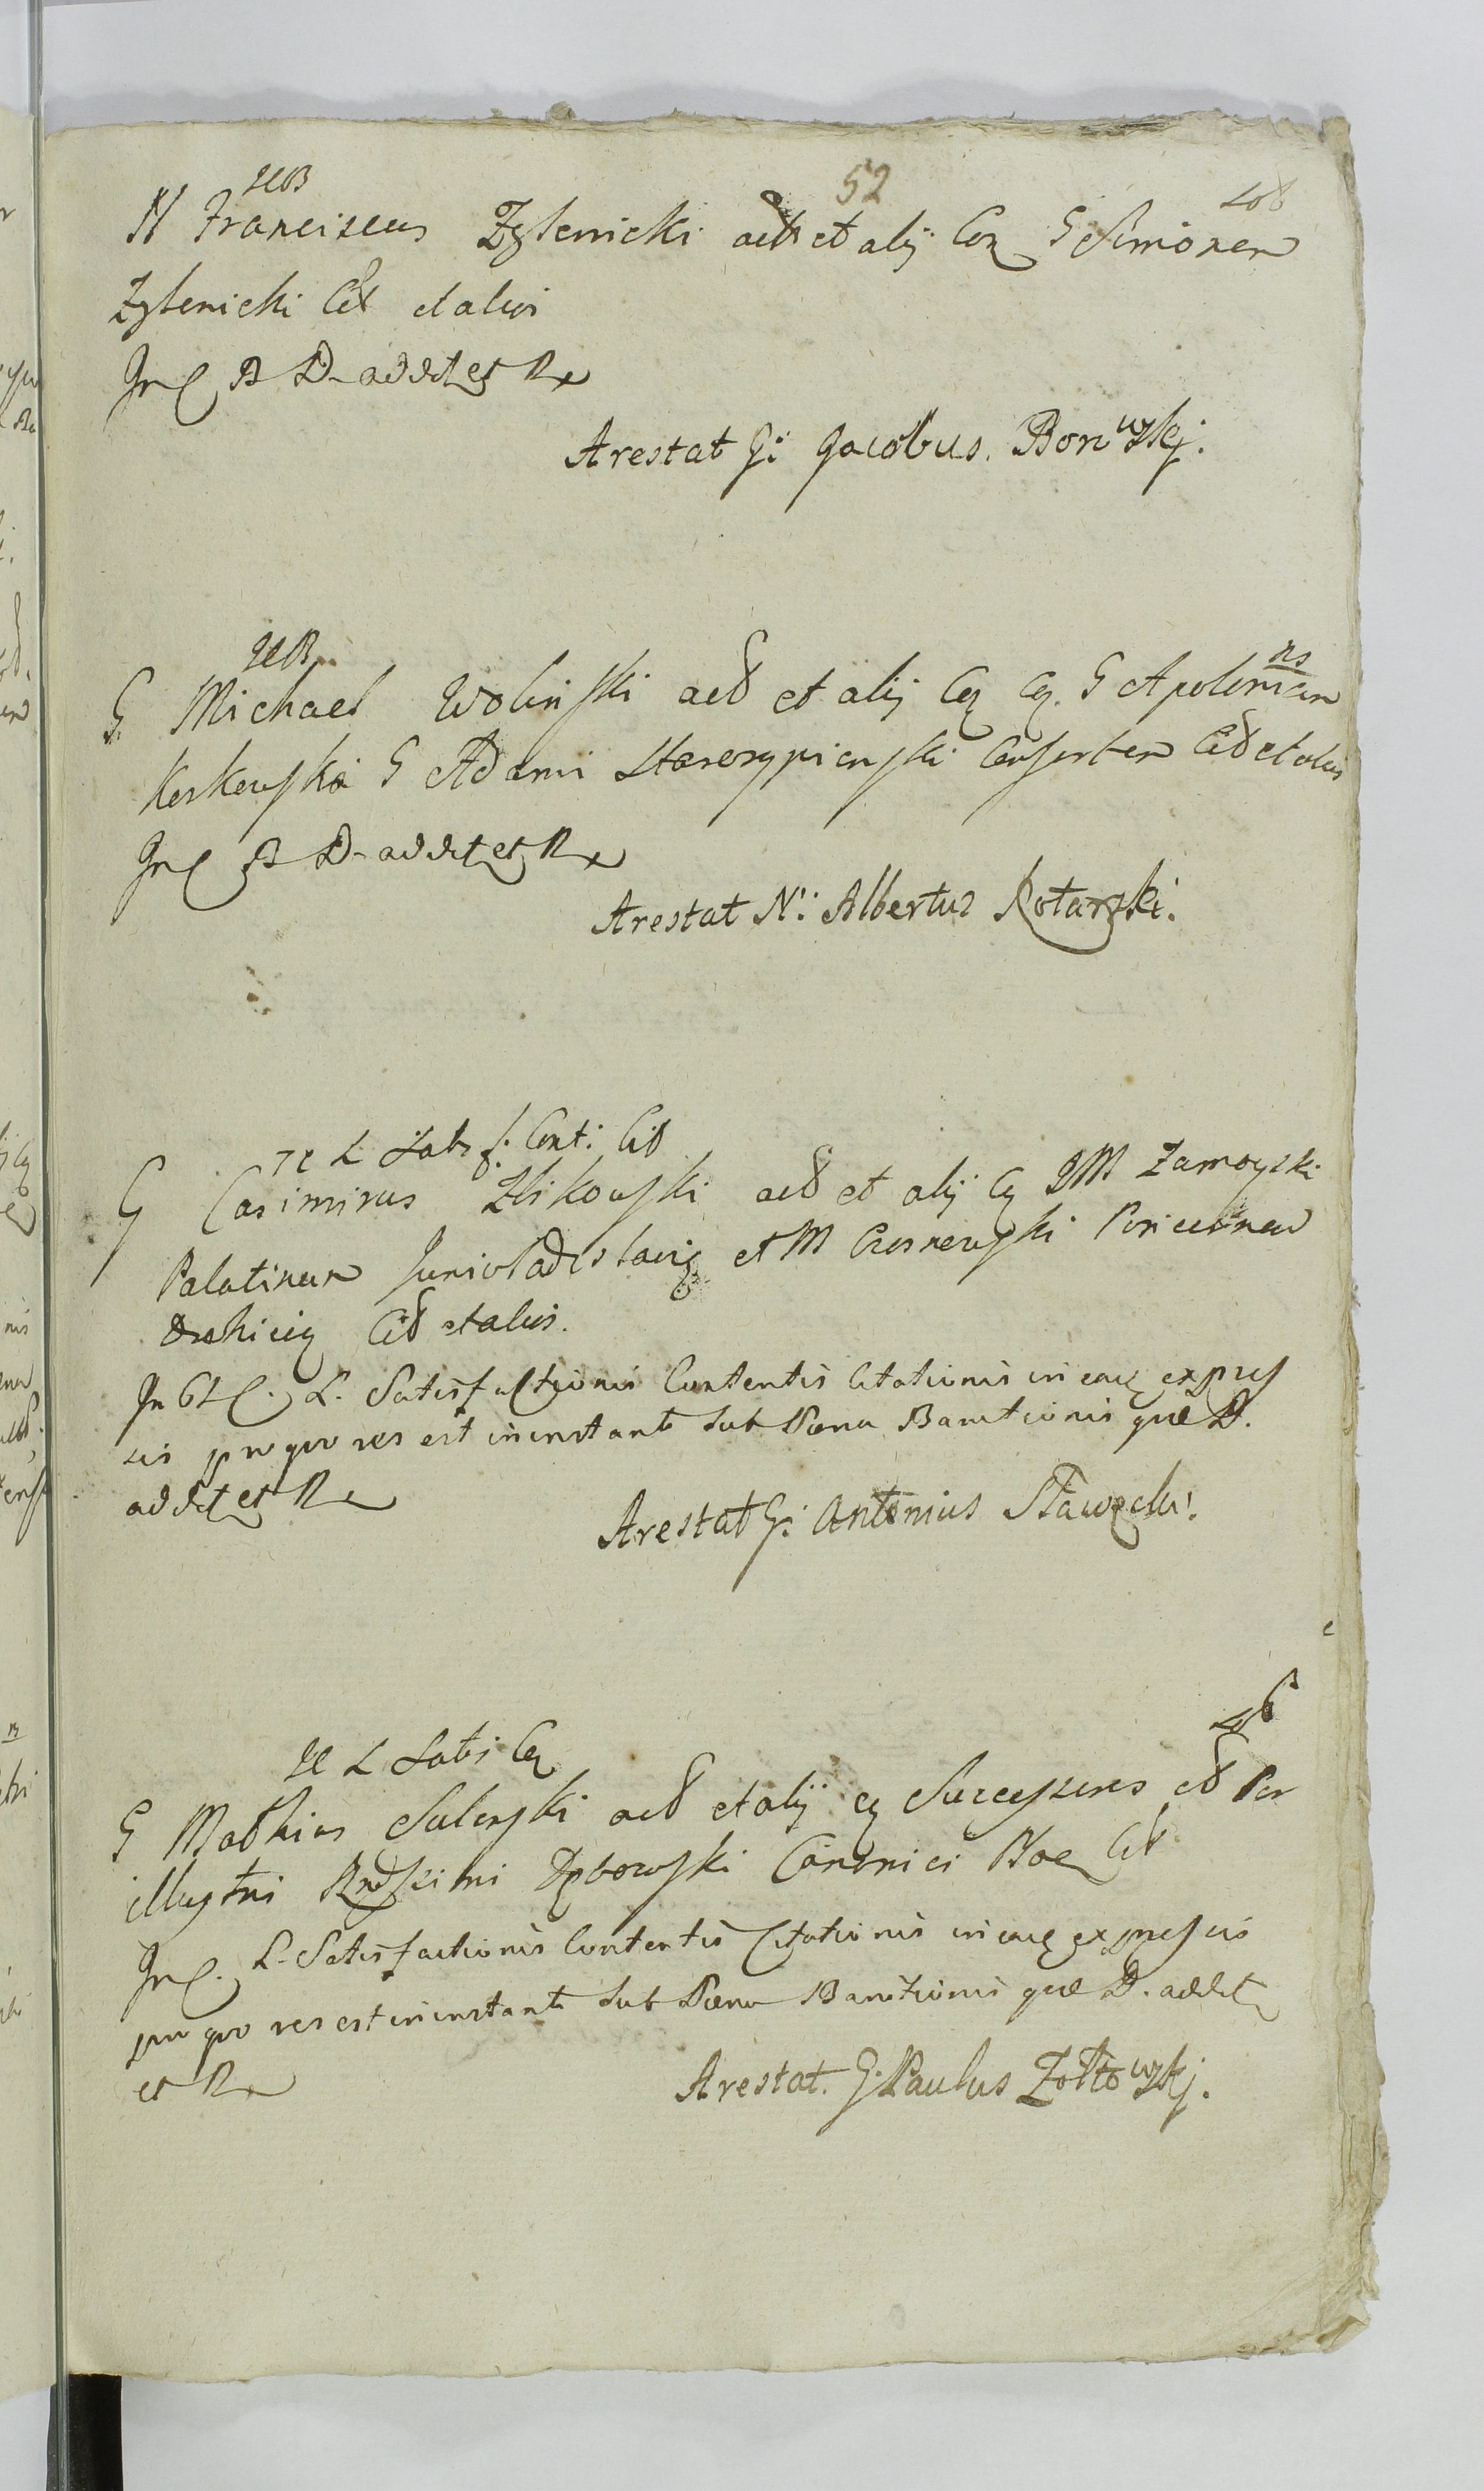 52
N Franciscus Zglenicki act et alij Con G Simonem
Zglenicki Cit et alios
In C B D addit et R
Arestat G: Jacobus Borowskj.
G. Michael Wolinski act et alij Cq G Apolinarem
Koskowski G Adami Staroszpienski Consortem Cit et alios
In C B D addit et R
Arestat N: Albertus Kotarski.
L Satis f: Cont: Cit
G Casimirus Zbikowski act et alij Cq IM Zamoyski
Palatinum Juniwladislavię et M Pincernam
Cit et alios.
In C. L. Satisfactionis Contentis Citationis in eaq expres
sis pro quo res est in instanti sub Pœna Bannitionis quæ D.
addit et R
Arestat G: Antonius Sławęcki.
L Satis Cq
G Mathias Suleski act et alij cq Successores Per
illustri Rndssimi Dębowski Canonici Cit
In C. L. Satisfactionis Contentis Citationis in eaq expressis
pro quo res est in instanti sub Pœna Bannitionis quæ D. addit
et R
Arestat. G: Paulus Żołtowskj.